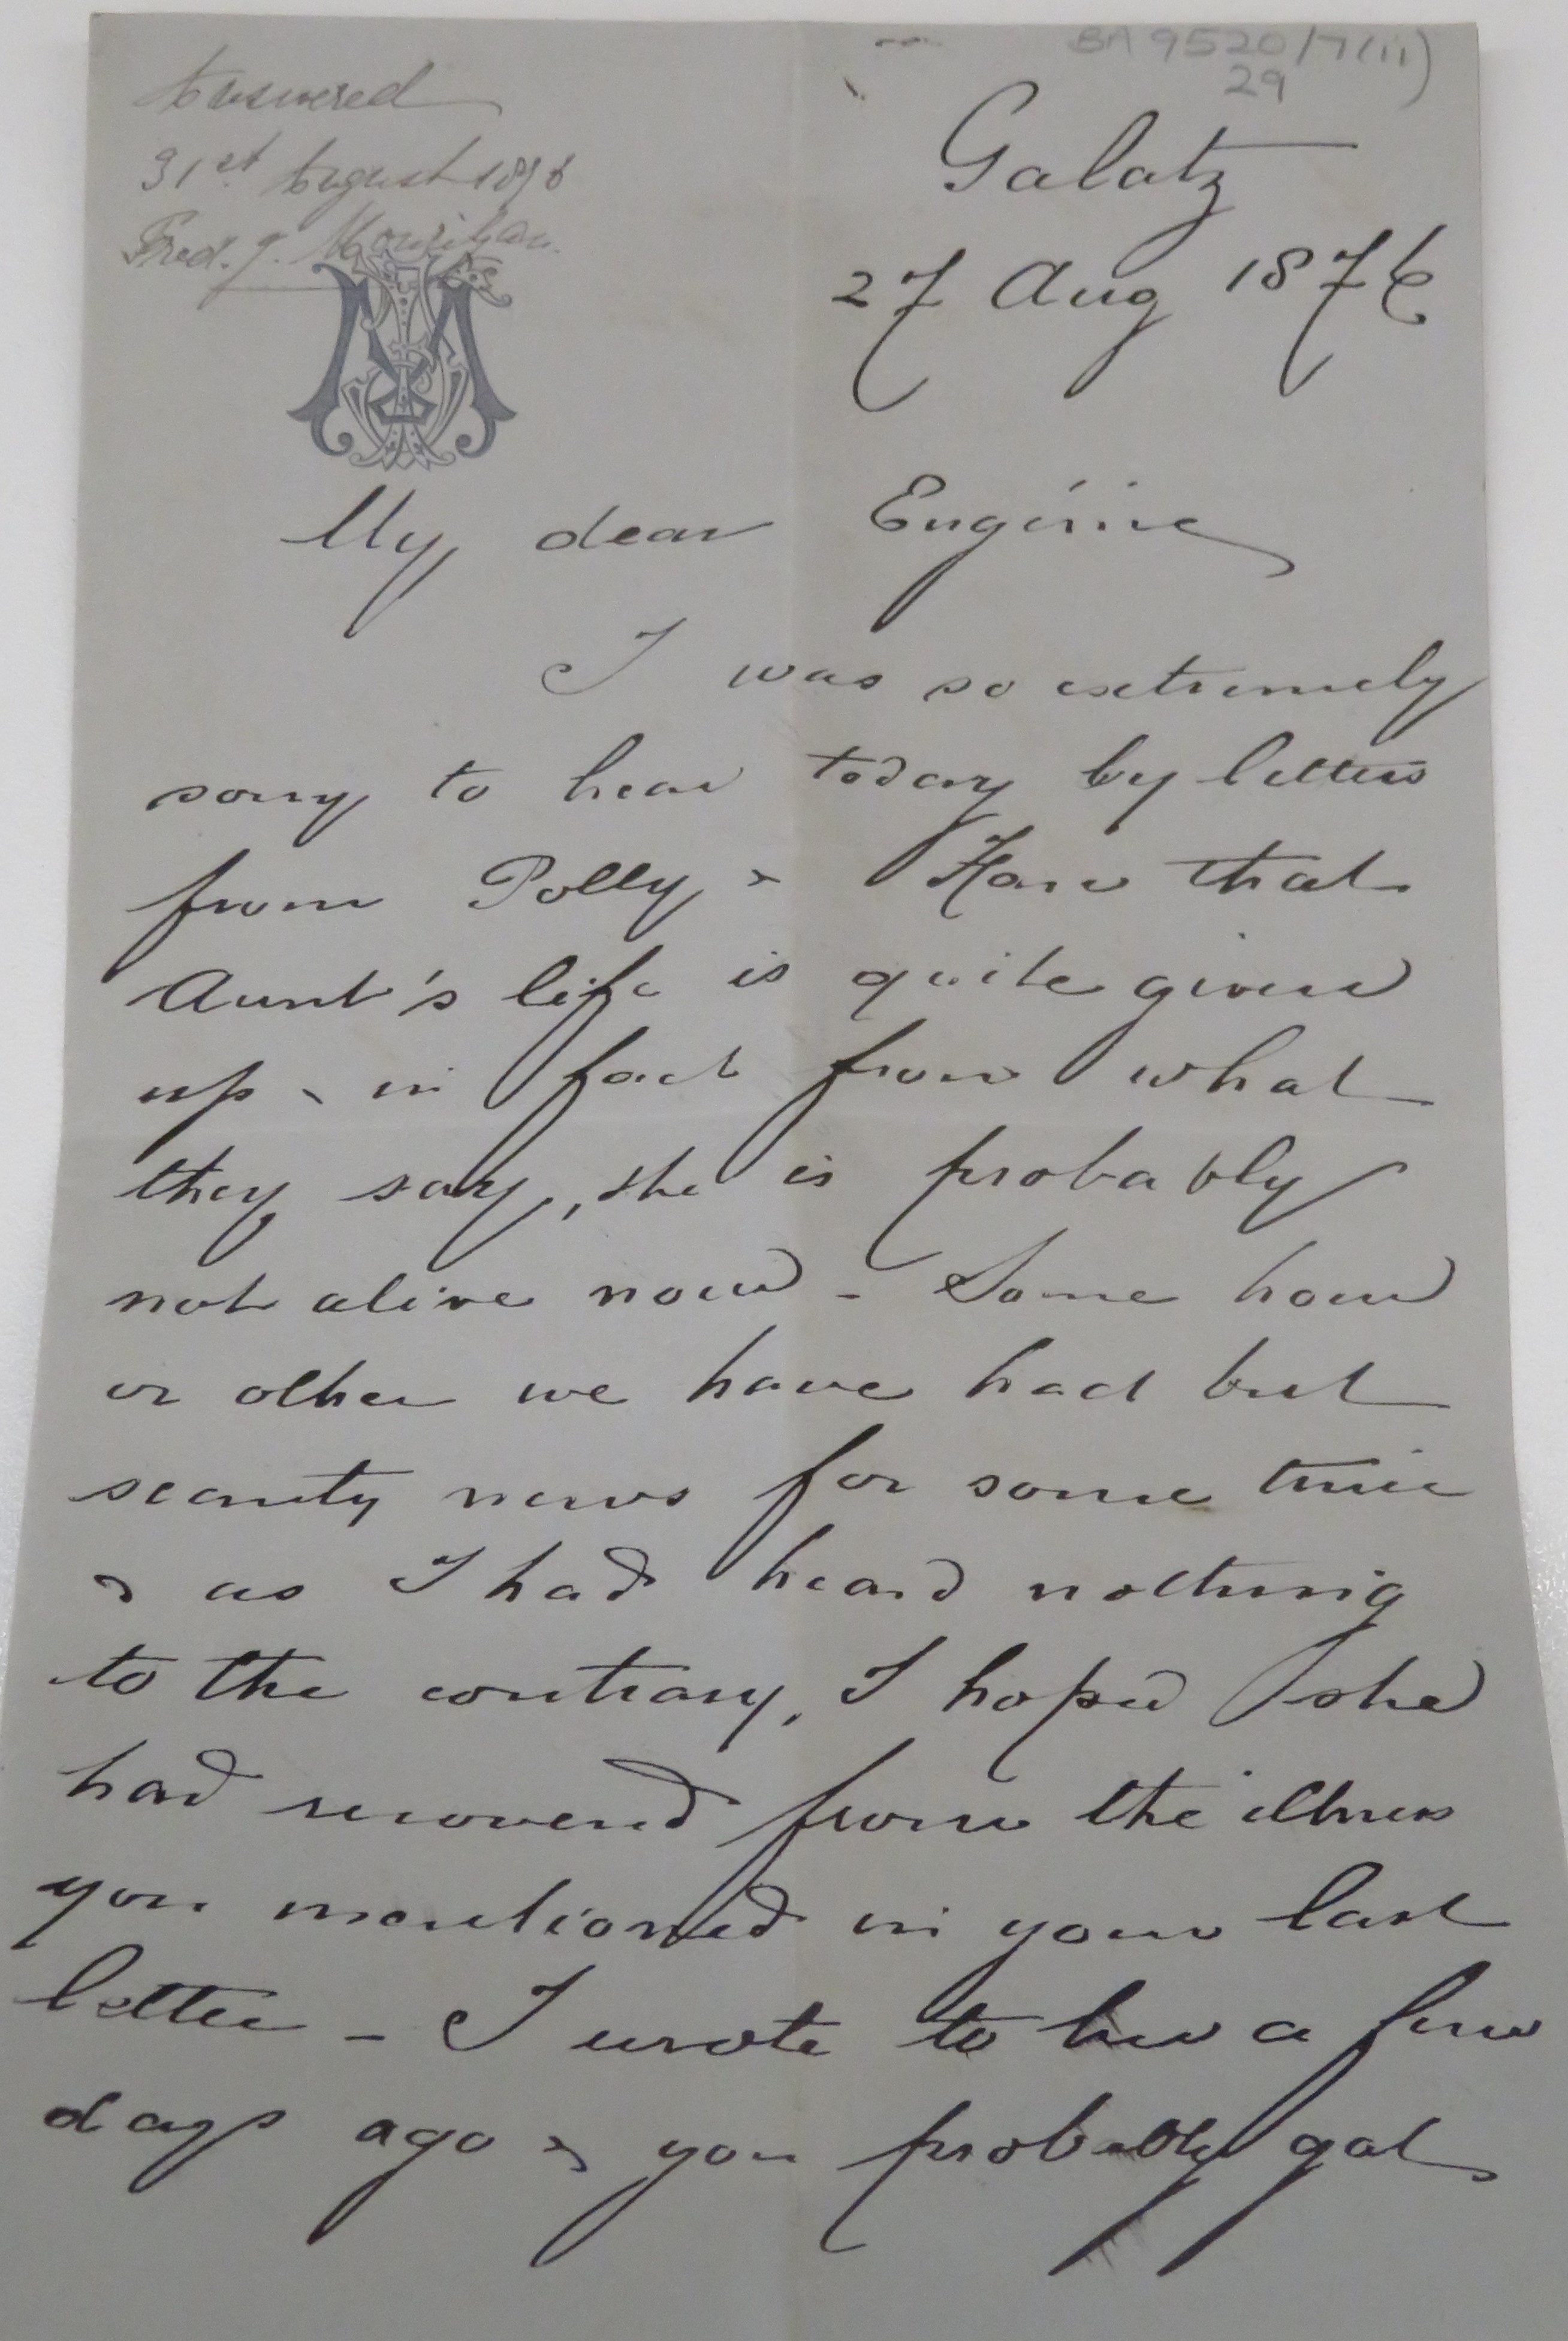 BA 9520/7(ii)
29
Answered
31st August 1876
Fred. J.
Galatz
27 Aug 1876
My dear Eugénie
I was so extremely
sorry to hear today by letters
from Polly & that
Aunt's life is quite given
up & in fact from what
they say, she is probably
not alive now - Some how
or other we have had but
scanty news for some time
& as I had heard nothing
to the contrary, I hoped she
had recovered from the illness
you mentioned in your last
letter - I wrote to her a few
days ago & you probably got